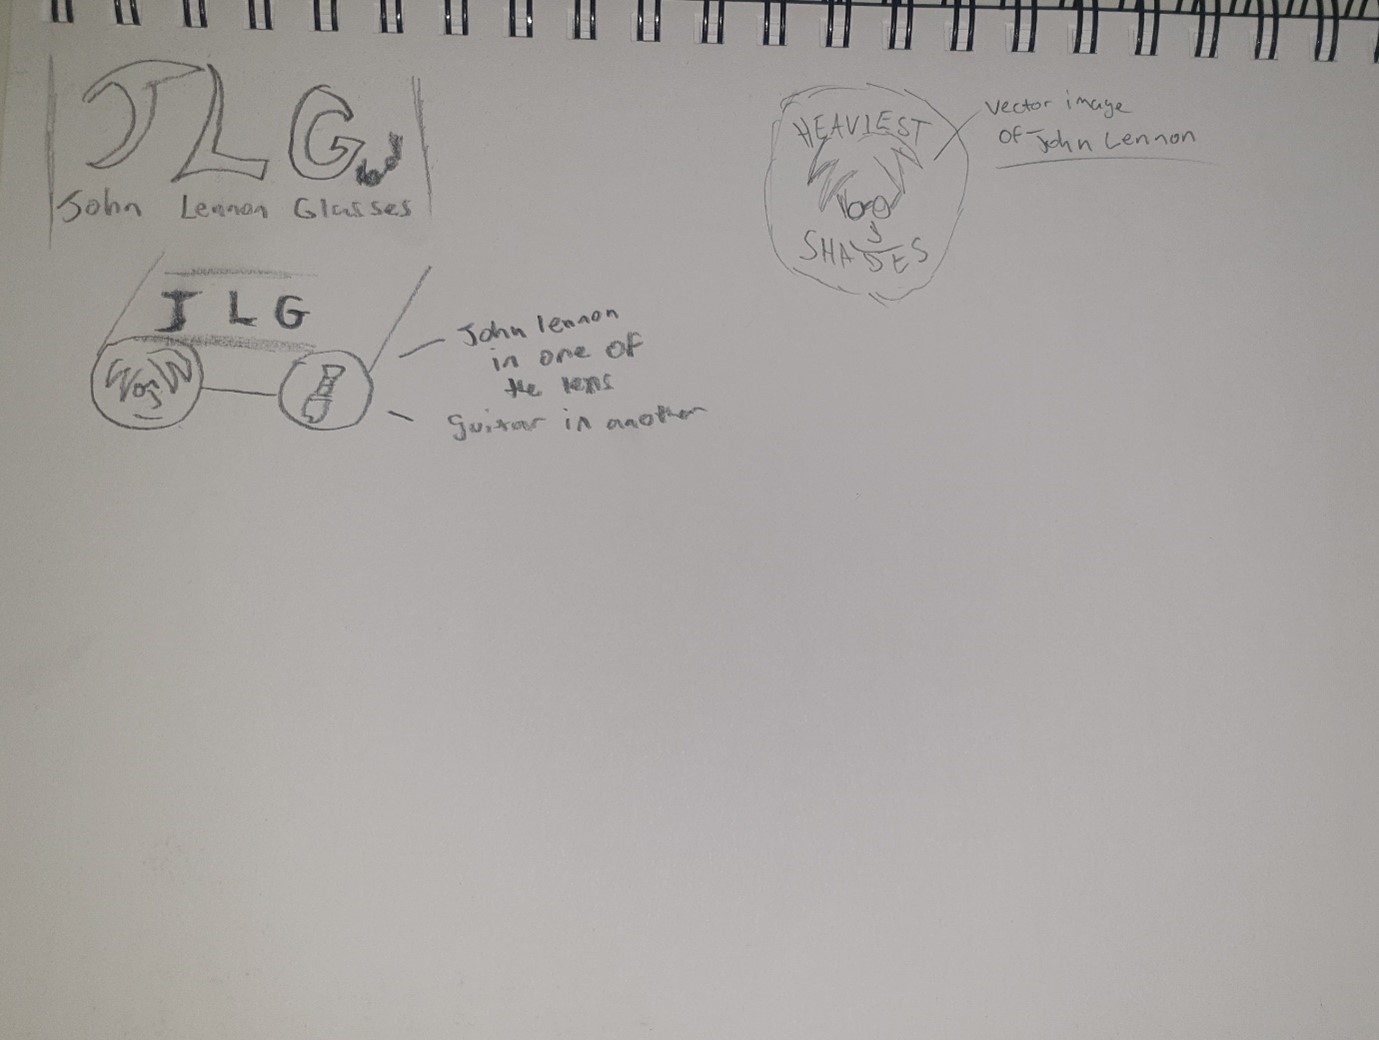 JLG
John Lennon Glasses
JLG
John lennon
in one of
the lens
guitar in another
HEAVIEST
SHADES
Vector image
of John Lennon